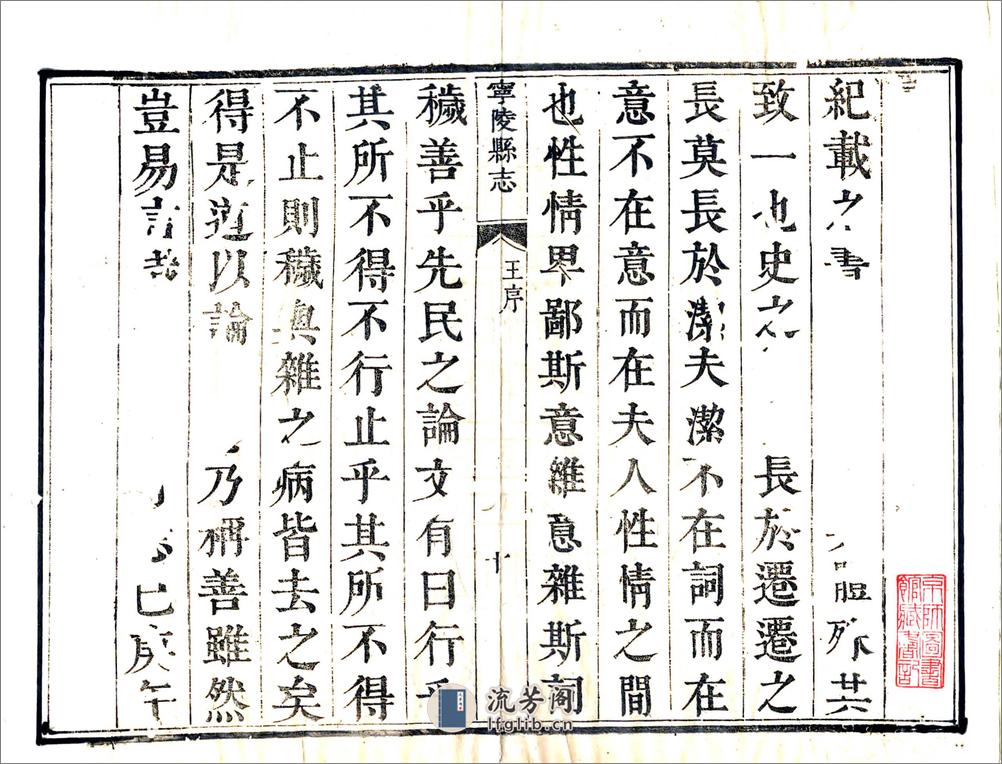 紀載之書體殊其
致一也史之長於遷遷之
長莫長於潔夫潔不在詞而在
意不在意而在夫人性情之間
也性情畀鄙斯意雜意雜斯詞
寧陵縣志
王序
十
穢善乎先民之論文有曰行乎
其所不得不行止乎其所不得
不止則穢與雜之病皆去之矣
得是道以論乃稱善雖然
豈易言哉己庚午
京師圖書
館藏書記
流芳阁
lfglib.cn